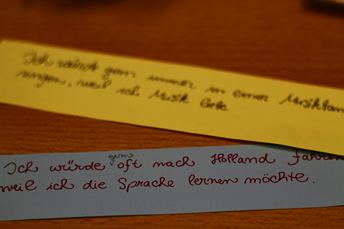 Ich würde gern immer in einer Musikban
singen, weil ich Musik liebe
gerne
Ich würde oft nach Holland fahren
weil ich die Sprache lernen möchte.